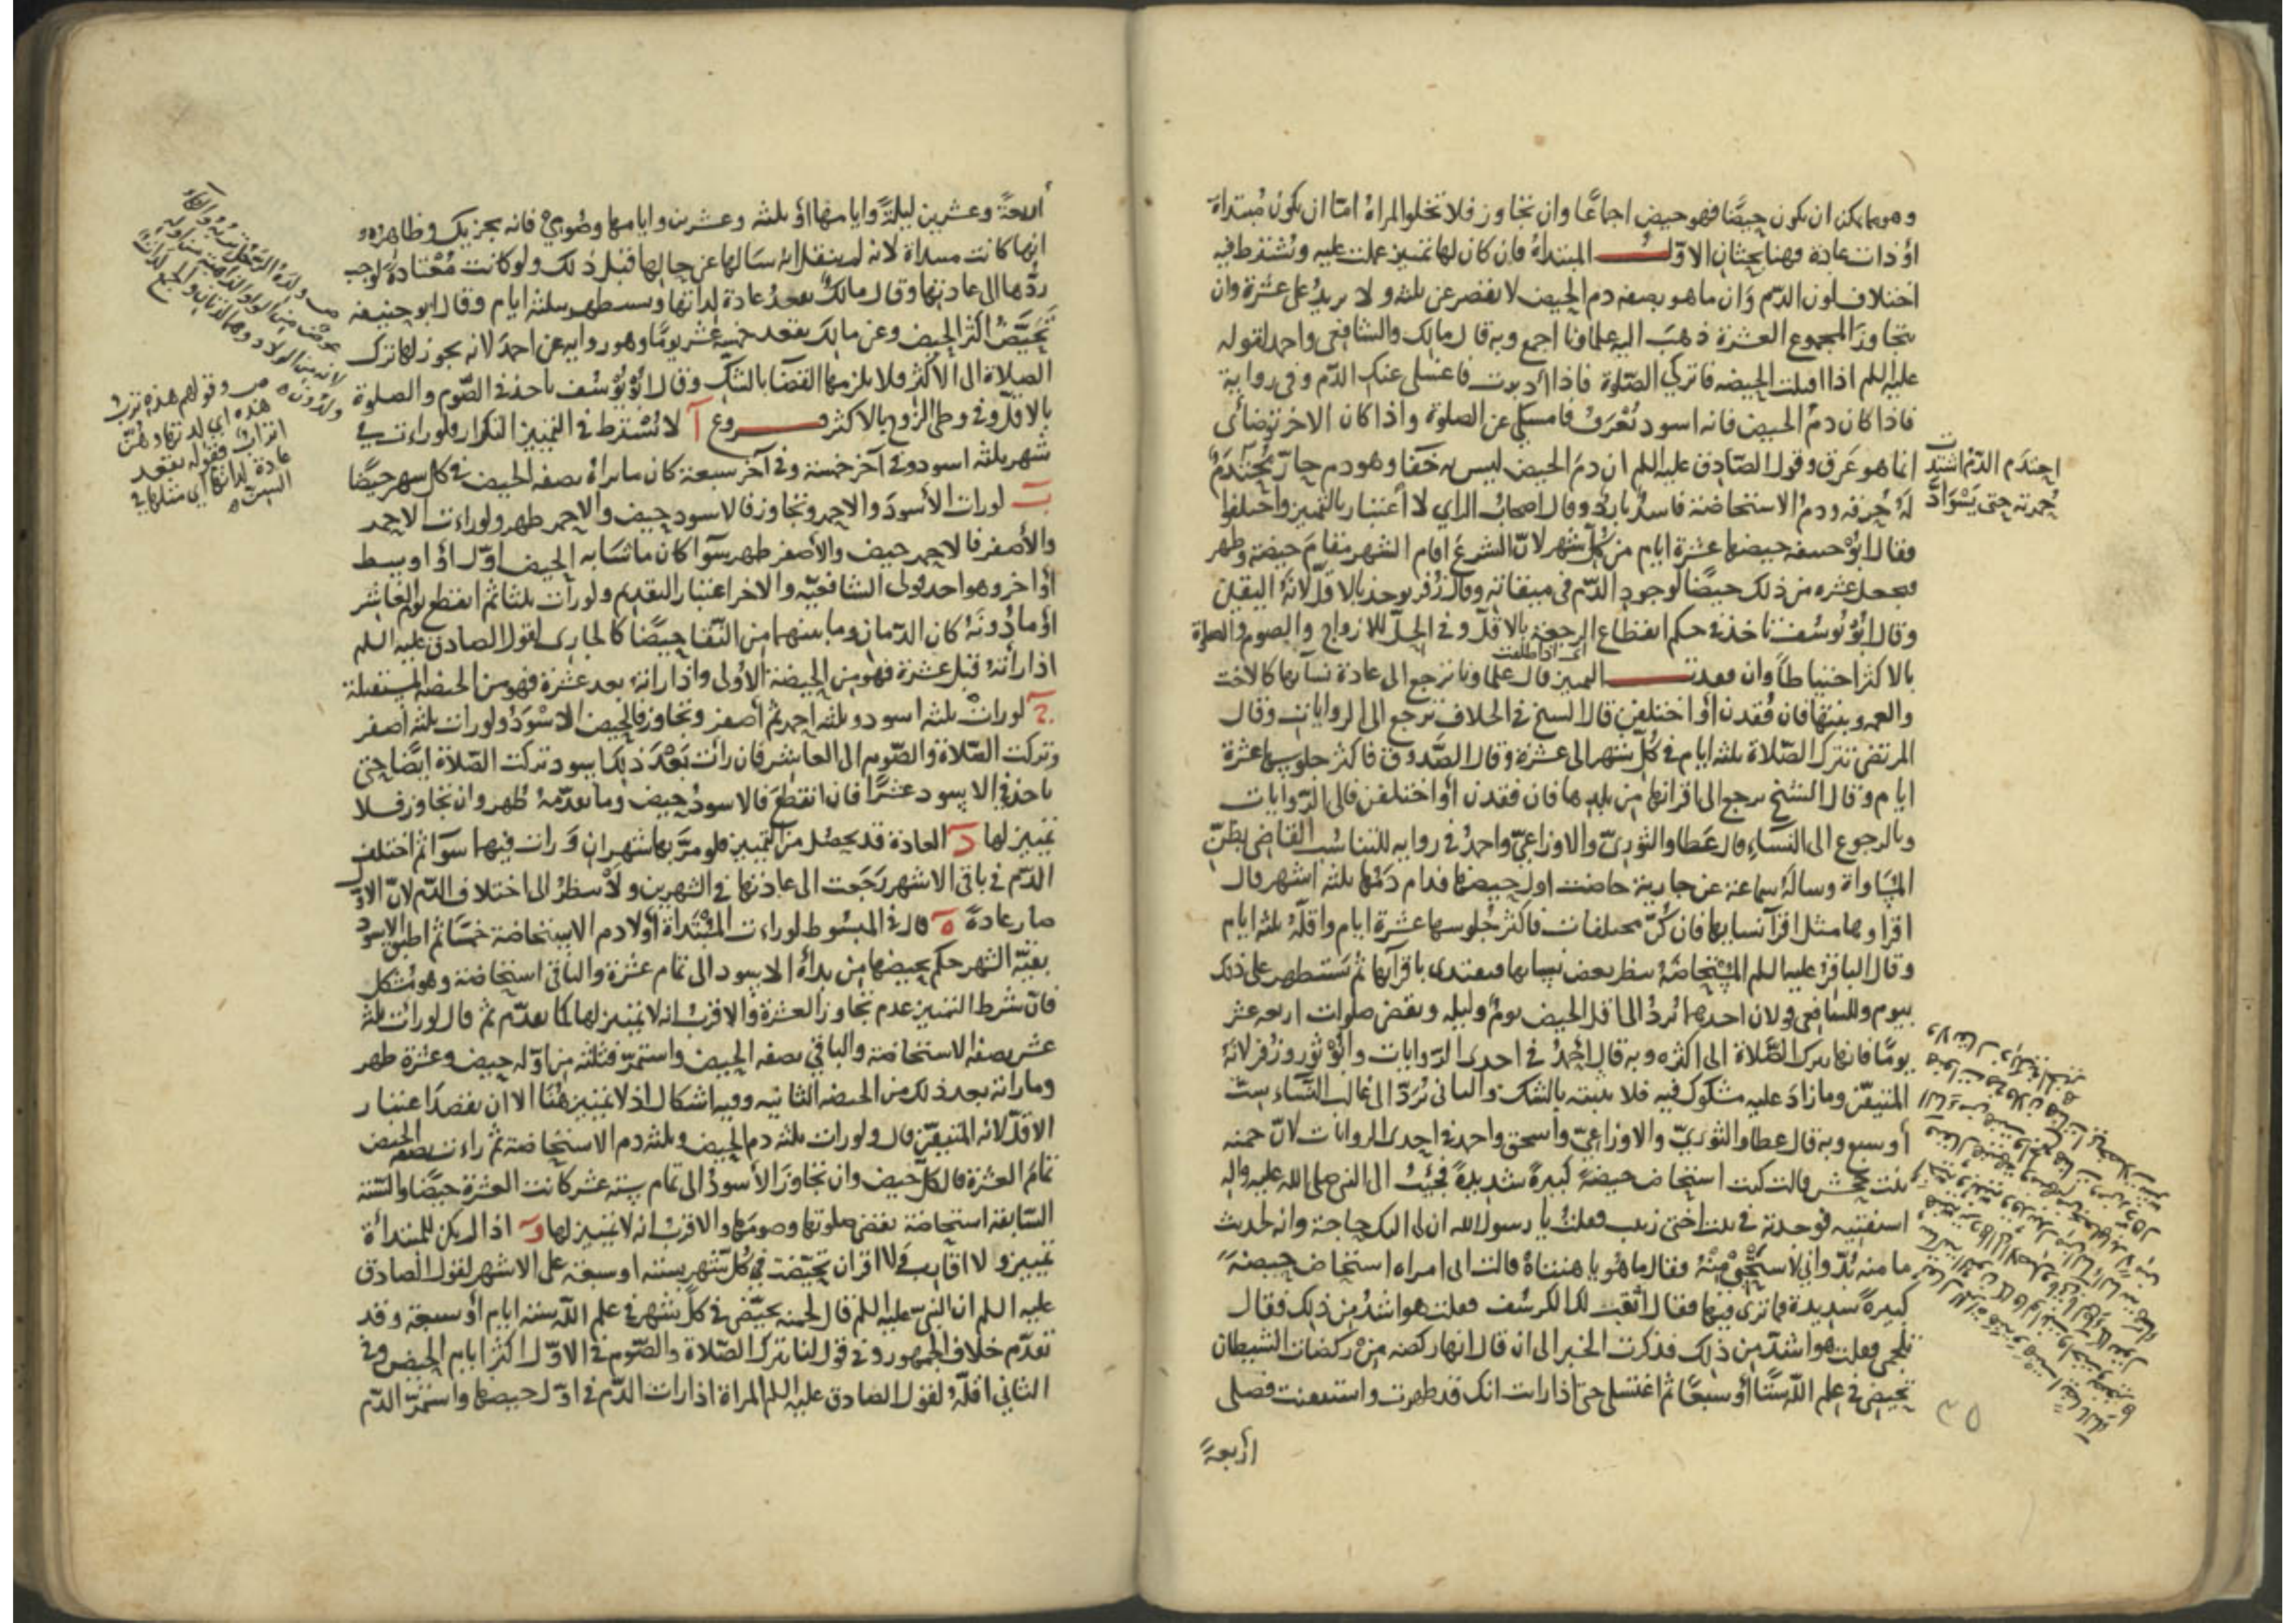 وهو ما يمكن ان يكون حيضًا فهو حيض اجماعًا وان تجاوز فلا تخلوا المراة امّا ان يكون مُبتداة
او ذات عادة فهنا بحثان الاوّل المبتداة فان كان لها تمييز عملت عليه ويُشترط فيه
اختلاف لون الدّم وان ما هو بصفه دم الحيض لا يقصر عن ثلثه ولا يزيدُ على عشرة وان
يتجاوز المجموع العشرة ذهبَ اليه علماونا اجمع وبه قال مالك والشافعى واحمد لقوله
عليه السلم اذا اقبلت الحيضه فاتركي الصّلوة فاذا ادبرت فاغسلى عنك الدّم وفى رواية
فاذا كان دمُ الحيض فانه اسود يُعْرَفُ فامسكي عن الصلوة واذا كان الاخر توضائى
انما هو عَرق وقول الصّادق عليه السلم ان دمَ الحيض ليس به خفا وهو دم حارّ يُحْتَدمُ
لهُ حُرقه ودمُ الاستحاضة فاسدٌ باردٌ وقال اصحابُ الراي لا اعتبار بالتمييز واختلفوا
فقال ابوْ حنيفه حيضها عشرة ايام من كُلّ شهر لانّ الشرعَ اقام الشهر مقامَ حيضة وطهر
فيجعل عشره من ذلك حيضًا لوجودِ الدّم فى ميقاته وقال زُفر يوخذ بالاقلّ لانّهُ اليقين
وقال ابوْ يُوسُف ناخذ فى حكم انقطاع الرجعة بالاقلّ وفى الحلّ للازواج والصوم والصلوة
اى اذا طلقت
بالاكثر احتياطًا وان فقدت التمييز قال علماونا ترجع الى عادة نسائها كالاخت
والعمه وبنتها فان فُقدن او اختلفن قال الشيخ فى الخلاف ترجع الى الروايات وقال
المرتضى تترك الصّلاة ثلثه ايام فى كُلّ شهر الى عشرة وقال الصَّدوق فاكثر جلوسها عشرة
ايام وقال الشيخ ترجع الى اقرانها من بلدها فان فقدن او اختلفن فالى الرّوايات
وبالرجوع الى النّساءِ قال عَطا والثورىّ والاوزاعىّ واحمدُ فى روايه للتناسُب القاضى بظنّ
المساواة وسالهُ سماعة عن جارية حاضت اول حيضها فدام دمُها ثلثه اشهر قال
اقراوها مثل اقرآ نسايها فان كُنّ مختلفات فاكثر جُلوسها عشرة ايام واقلّهُ ثلثه ايام
وقال الباقرُ عليه السلم المُسْتحاضَةُ تنظر بعض نسايها فتقتدى باقرآئها ثم تستظهر على ذلك
بيوم وللشافعى قولان احدهما تُردُّ الى اقل الحيض يومٌ وليله وتقضى صلوات اربعه عشر
يومًا فانها تترك الصّلاة الى اكثره وبه قال احمدُ فى احدى الرّوايات وابوْ ثور وزُفر لانّهُ
المتيقّن وما زادَ عليه مشكوك فيه فلا نثبته بالشك والثانى تُرَدّ الى غالب النّساء ستّ
او سبع وبه قال عطا والثورىّ والاوزاعىّ واسحق واحمد فى احدى الروايات لانّ حمنه
بنت جحش قالت كنت استحاض حيضةً كبيرةً شديدةً فجئتُ الى النبي صلى الله عليه واله
استفتيه فوجدته فى بيت اختى زينب فقلتُ يا رسول الله ان لى اليك حاجة وانه لحديث
ما منه بُدّ وانى لاستَحْيي مِنْهُ فقال ما هُو يا هنتاهُ قالت انى امراه استحاض حيضةً
كبيرةً شديدة فما ترى فيها فقال اَنْعَت لك الكرسُف فقلت هو اشدُّ من ذلك فقال
تلجمى فقلت هو اشدّ من ذلك فذكرت الخبر الى ان قال انها ركضه مِنْ ركضات الشيطان
تحيضى فى علم اللّه ستًّا او سبعًا ثم اغتسلى حتى اذا رايت انك قد طهرت واستنقت فصلى
اربعةً
احتدم الدّم اشتدّت
حُمرته حتى يَسْوَادَّ
٣٥
اربعةً وعشرين ليلةً وايامها او ثلثه وعشرين وايامها وصُومى فانه يجزيك وظاهِرُه
انها كانت مبتداة لانه لم ينقل انه سَالها عن حالها قبل ذلك ولو كانت مُعْتادةً لوجب
ردّها الى عادتها وقال مالكٌ تقعدُ عادة لداتها وتستظهر بثلثه ايام وقال ابو حنيفه
تحيَّضُ اكثر الحيض وعن مالك تقعد خمسه عشر يومًا وهو روايه عن احمدَ لانه يجوز لها ترك
الصلاة الى الاكثر فلا يلزمها القضا بالشك وقال ابوْ يُوسُف ناخذ فى الصّوم والصلوة
بالاقلّ وفى وطى الزوج بالاكثر فروع آ لا يُشترط فى التمييز التكرار فلو رات فى
شهر ثلثه اسود وفى آخر خمسة وفى آخر سبعة كان ما تراه بصفه الحيض فى كل شهر حيضًا
ب لو رات الأسودَ والاحمر وتجاوز فالاسود حيض والاحمر طهر ولو راءت الاحمر
والأصفر فالاحمر حيض والأصفر طهر سوآ كان ما تشابه الحيض اوّل او اوسط
او اخر وهو احد قولى الشافعيّه والاخر اعتبار التقديم ولو رات ثلثا ثم انقطع يوم العاشر
او ما دُونَهُ كان الدّمان وما بينهما من النّقا حيضًا كالجارى لقول الصادق عليه السلم
اذا راته قبل عشرة فهو من الحيضة الأولى واذا راته بعد عشرة فهو من الحيضه المستقبلة
ج لو رات ثلثه اسود وثلثه احمر ثم اصفر وتجاوز فالحيض الاسْوَدُ ولو رات ثلثه اصفر
وتركت الصّلاة والصّوم الى العاشر فان رات بَعْدَ ذلك اسود تركت الصّلاة ايضًا حتى
ياخذ فى الاسود عشرًا فان انقطعَ فالاسودُ حيض وما تقدّمهُ طُهر وان تجاوز فلا
تمييز لها د العادة قد يحصُل من التمييز فلو مرَّ بها شهران وَرات فيهما سوآ ثم اختلف
الدّم فى باقى الاشهر رَجَعت الى عادتها فى الشهرين ولا تنظرُ الى اختلاف الدّم لانّ الاوّل
صار عادةً ه قال فى المبسُوط لو راءت المُبْتَداة اوّلا دم الاستحاضة خمسًا ثم اطبق الاسود
بقيّة الشهر حكم بحيضها من بدأة الاسود الى تمام عشرة والباقى استحاضة وهو مُشكل
فانّ شرط التمييز عدم تجاوز العشرة والاقربُ انه لا تمييز لها كما تقدّم ثم قال لو رات ثلثة
عشر بصفه الاستحاضة والباقي بصفه الحيض واستمرّ فثلثه من اوّله حيض وعشرة طهر
وما راته بعد ذلك من الحيضه الثانيه وفيه اشكال اذ لا تمييز هُنَا الا ان يقصدَ اعتبار
الاقلّ لانه المتيقّن قال ولو رات ثلثه دم الحيض وثلثه دم الاستحاضة ثم راءت بصفه الحيض
تمامُ العشرة فالكُلّ حيض وان تجاوزَ الأسودُ الى تمام ستة عشر كانت العشرة حيضًا والستة
السّابقة استحاضة تقضى صلوتها وصومها والاقربُ انه لا تمييز لها و اذا لم يكن للمبتداة
تمييز ولا اقارب ولا اقران تحيّضت فى كُلّ شهر بستة او سبعة على الاشهر لقول الصادق
عليه السلم ان النبىّ عليه السلم قال لحمنه تحيّضى فى كلّ شهر فى علم اللّه ستة ايام او سبعة وقد
تقدّم خلاف الجمهور وفى قول لنا تترك الصّلاة والصّوم فى الاوّل اكثر ايام الحيض وفى
الثانى اقلّهُ لقول الصادق عليه السلم المراة اذا رات الدّم فى اوّل حيضها واستمرّ الدّم
ص وقولهم هذه ترب
هذه اى لدتها وهنّ
اتراب فقوله تقعد
عادة لداتها اى مثلها فى
السن